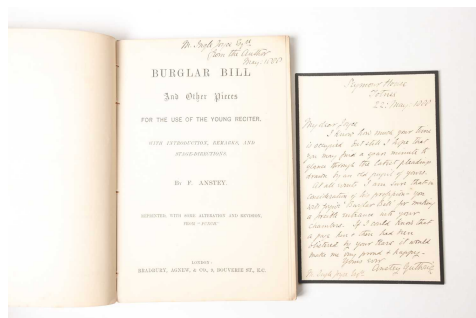 from the Author
BURGLAR BILL
And Other Pieces
FOR THE USE OF THE YOUNG RECITER,
WITH INTRODUCTION, REMARKS, AND
STAGE-DIRECTIONS.
By F. ANSTEY.
REPRINTED, WITH SOME ALTERATION AND REVISION,
FROM "PUNCH."
LONDON:
BRADBURY, AGNEW, & CO. 8 BOUVERIE ST., E.C.
Seymour House
Totnes
My dear
I know how much your time
is occupied but still I hope that
you may find a spare minute to
glance through the latest
by an old pupil of yours.
At all events I am sure that in
consideration of his profession you
will "Burglar Bill" for making
a entrance into your
chambers. If I could know that
a page here & there had been
by your tears it would
make me very proud & happy.
Yours ever
Anstey Guthrie